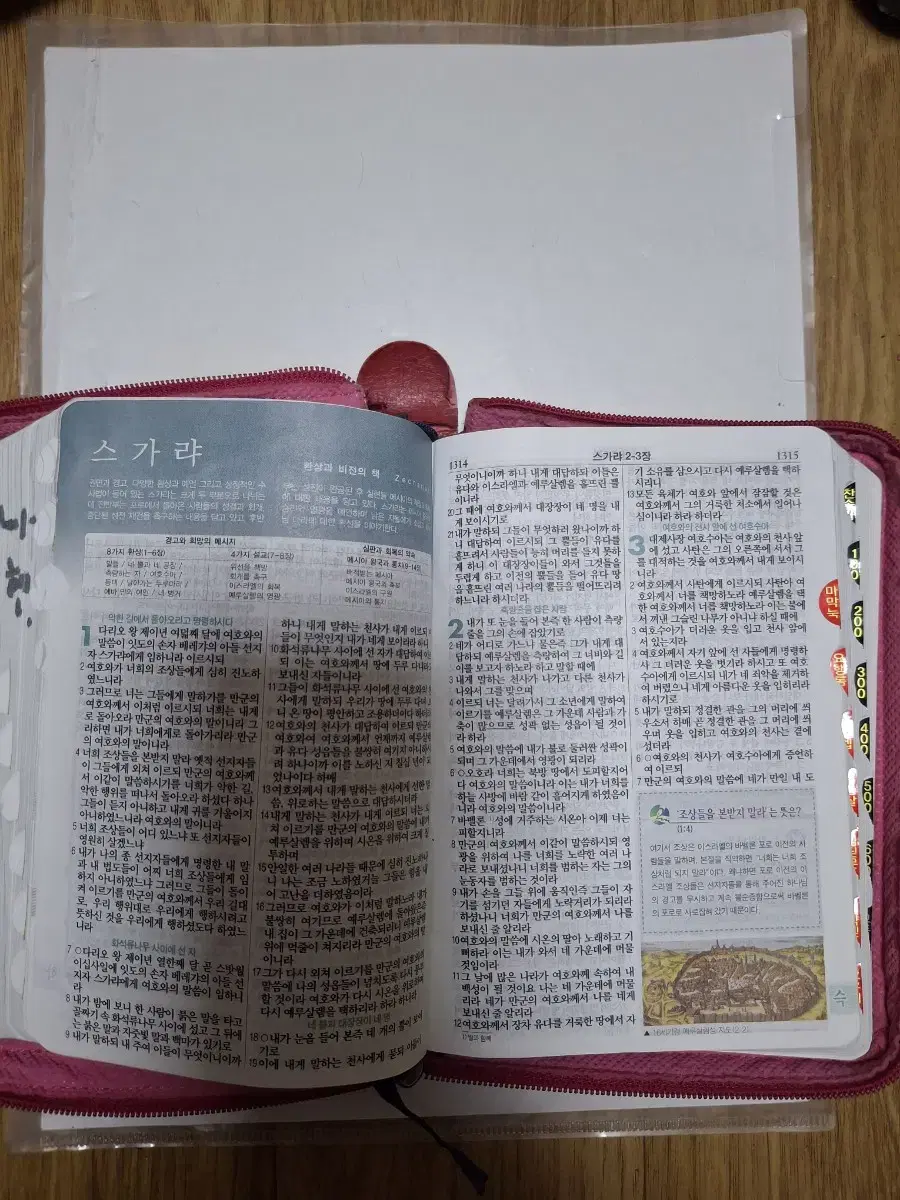 스가랴
환상과 비전의 책
경고와 희망의 메시지
8가지 환상(1-6장)
4가지 설교(7-8장)
심판과 회복의 약속
악한 길에서 돌아오라고 명령하시다
1 다리오 왕 제이년 여덟째 달에 여호와의
말씀이 잇도의 손자 베레갸의 아들 선지
자 스가랴에게 임하니라 이르시되
2 여호와가 너희의 조상들에게 심히 진노하
였느니라
3 그러므로 너는 그들에게 말하기를 만군의
여호와께서 이처럼 이르시되 너희는 내게
로 돌아오라 만군의 여호와의 말이니라 그
리하면 내가 너희에게로 돌아가리라 만군
의 여호와의 말이니라
4 너희 조상들을 본받지 말라 옛적 선지자들
이 그들에게 외쳐 이르되 만군의 여호와께
서 이같이 말씀하시기를 너희가 악한 길,
악한 행위를 떠나서 돌아오라 하셨다 하나
그들이 듣지 아니하고 내게 귀를 기울이지
아니하였느니라 여호와의 말이니라
5 너희 조상들이 어디 있느냐 또 선지자들이
영원히 살겠느냐
6 내가 나의 종 선지자들에게 명령한 내 말
과 내 법도들이 어찌 너희 조상들에게 임
하지 아니하였느냐 그러므로 그들이 돌이
켜 이르기를 만군의 여호와께서 우리 길대
로, 우리 행위대로 우리에게 행하시려고
뜻하신 것을 우리에게 행하셨도다 하였느
니라
화석류나무 사이에 선 자
7 ○다리오 왕 제이년 열한째 달 곧 스밧월
이십사일에 잇도의 손자 베레갸의 아들 선
지자 스가랴에게 여호와의 말씀이 임하니
라
8 내가 밤에 보니 한 사람이 붉은 말을 타고
골짜기 속 화석류나무 사이에 섰고 그 뒤에
는 붉은 말과 자줏빛 말과 백마가 있기로
9 내가 말하되 내 주여 이들이 무엇이니이까
하니 내게 말하는 천사가 내게 이르되
들이 무엇인지 내가 네게 보이리라
10 화석류나무 사이에 선 자가 대답하
되 이는 여호와께서 땅에 두루 다니라
보내신 자들이니라
11 그들이 화석류나무 사이에 선 여호와의
사에게 말하되 우리가 땅에 두루 다녀
니 온 땅이 평안하고 조용하더이다
12 여호와의 천사가 대답하여 이르되
여호와여 여호와께서 언제까지 예루살렘
과 유다 성읍들을 불쌍히 여기지 아니하
려 하시나이까 이를 노하신 지 칠십 년이
었나이다 하매
13 여호와께서 내게 말하는 천사에게 선한
씀, 위로하는 말씀으로 대답하시더라
14 내게 말하는 천사가 내게 이르되 너는
쳐 이르기를 만군의 여호와의 말씀에
예루살렘을 위하며 시온을 위하여 크게
투하며
15 안일한 여러 나라들 때문에 심히 진노하
니 나는 조금 노하였거늘 그들은 힘을 내
어 고난을 더하였음이라
16 그러므로 여호와가 이처럼 말하노라 내가
불쌍히 여기므로 예루살렘에 돌아왔은즉
내 집이 그 가운데에 건축되리니 예루살렘
위에 먹줄이 쳐지리라 만군의 여호와의
17 그가 다시 외쳐 이르기를 만군의 여호와의
말씀에 나의 성읍들이 넘치도록 다시 풍부
할 것이라 여호와가 다시 시온을 위로하며
다시 예루살렘을 택하리라 하라 하니라
18 ○내가 눈을 들어 본즉 네 개의 뿔이 보이
기로
19 이에 내게 말하는 천사에게 묻되 이들이
1314
스가랴 2-3장
1315
무엇이니이까 하니 내게 대답하되 이들은
유다와 이스라엘과 예루살렘을 흩뜨린 뿔
이니라
20 그 때에 여호와께서 대장장이 네 명을 내
게 보이시기로
21 내가 말하되 그들이 무엇하러 왔나이까 하
니 대답하여 이르시되 그 뿔들이 유다를
흩뜨려서 사람들이 능히 머리를 들지 못하
게 하니 이 대장장이들이 와서 그것들을
두렵게 하고 이전의 뿔들을 들어 유다 땅
을 흩뜨린 여러 나라의 뿔들을 떨어뜨리려
하느니라 하시더라
측량줄을 잡은 사람
2 내가 또 눈을 들어 본즉 한 사람이 측량
줄을 그의 손에 잡았기로
2 네가 어디로 가느냐 물은즉 그가 내게 대
답하되 예루살렘을 측량하여 그 너비와 길
이를 보고자 하노라 하고 말할 때에
3 내게 말하는 천사가 나가고 다른 천사가
나와서 그를 맞으며
4 이르되 너는 달려가서 그 소년에게 말하여
이르기를 예루살렘은 그 가운데 사람과 가
축이 많으므로 성곽 없는 성읍이 될 것이
라 하라
5 여호와의 말씀에 내가 불로 둘러싼 성곽이
되며 그 가운데에서 영광이 되리라
6 ○오호라 너희는 북방 땅에서 도피할지어
다 여호와의 말씀이니라 이는 내가 너희를
하늘 사방에 바람 같이 흩어지게 하였음이
니라 여호와의 말씀이니라
7 바벨론 성에 거주하는 시온아 이제 너는
피할지니라
8 만군의 여호와께서 이같이 말씀하시되 영
광을 위하여 나를 너희를 노략한 여러 나
라로 보내셨나니 너희를 범하는 자는 그의
눈동자를 범하는 것이라
9 내가 손을 그들 위에 움직인즉 그들이 자
기를 섬기던 자들에게 노략거리가 되리라
하셨나니 너희가 만군의 여호와께서 나를
보내신 줄 알리라
10 여호와의 말씀에 시온의 딸아 노래하고 기
뻐하라 이는 내가 와서 네 가운데에 머물
것임이라
11 그 날에 많은 나라가 여호와께 속하여 내
백성이 될 것이요 나는 네 가운데에 머물
리라 네가 만군의 여호와께서 나를 네게
보내신 줄 알리라
12 여호와께서 장차 유다를 거룩한 땅에서 자
기 소유를 삼으시고 다시 예루살렘을 택하
시리니
13 모든 육체가 여호와 앞에서 잠잠할 것은
여호와께서 그의 거룩한 처소에서 일어나
심이니라 하라 하더라
여호와의 천사 앞에 선 여호수아
3 대제사장 여호수아는 여호와의 천사 앞
에 섰고 사탄은 그의 오른쪽에 서서 그
를 대적하는 것을 여호와께서 내게 보이시
니라
2 여호와께서 사탄에게 이르시되 사탄아 여
호와께서 너를 책망하노라 예루살렘을 택
한 여호와께서 너를 책망하노라 이는 불에
서 꺼낸 그슬린 나무가 아니냐 하실 때에
3 여호수아가 더러운 옷을 입고 천사 앞에
서 있는지라
4 여호와께서 자기 앞에 선 자들에게 명령하
사 그 더러운 옷을 벗기라 하시고 또 여호
수아에게 이르시되 내가 네 죄악을 제거하
여 버렸으니 네게 아름다운 옷을 입히리라
하시기로
5 내가 말하되 정결한 관을 그의 머리에 씌
우소서 하매 곧 정결한 관을 그 머리에 씌
우며 옷을 입히고 여호와의 천사는 곁에
섰더라
6 ○여호와의 천사가 여호수아에게 증언하
여 이르되
7 만군의 여호와의 말씀에 네가 만일 내 도
'조상들을 본받지 말라'는 뜻은?
(1:4)
여기서 조상은 이스라엘의 바벨론 포로 이전의 사
람들을 말하며, 본절을 직역하면 '너희는 너희 조
상처럼 되지 말라'이다. 왜냐하면 포로 이전의 이
스라엘 조상들은 선지자들을 통해 주어진 하나님
의 경고를 무시하고 계속 불순종함으로써 바벨론
의 포로로 사로잡혀 갔기 때문이다.
슥
마
막
눅
200
300
400
500